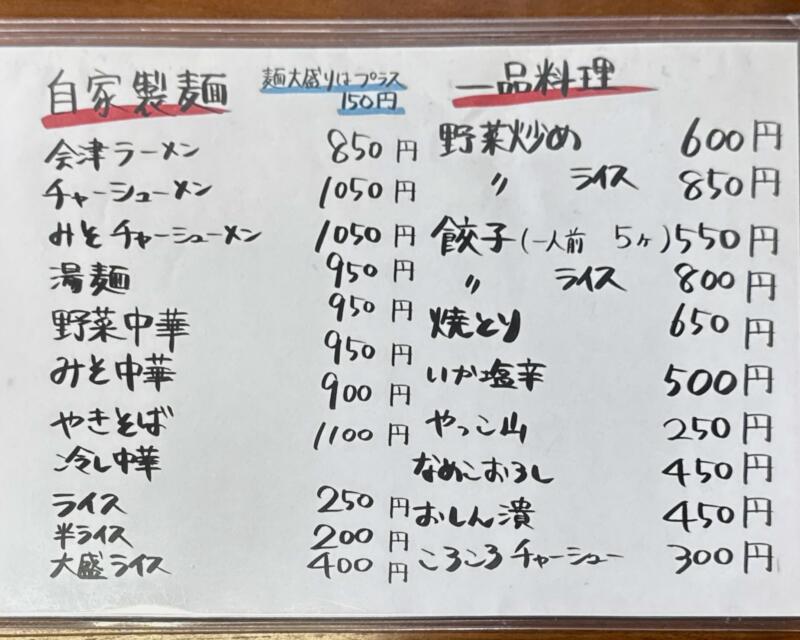 自家製麺
麺大盛りはプラス
150円
会津ラーメン 850円
チャーシューメン 1050円
みそチャーシューメン 1050円
湯麺 950円
野菜中華 950円
みそ中華 950円
やきそば 900円
冷し中華 1100円
ライス 250円
半ライス 200円
大盛ライス 400円
一品料理
野菜炒め 600円
〃 ライス 850円
餃子(一人前 5ヶ)550円
〃 ライス 800円
焼とり 650円
いか塩辛 500円
やっこ山 250円
なめこおろし 450円
おしん潰 450円
ころころチャーシュー 300円